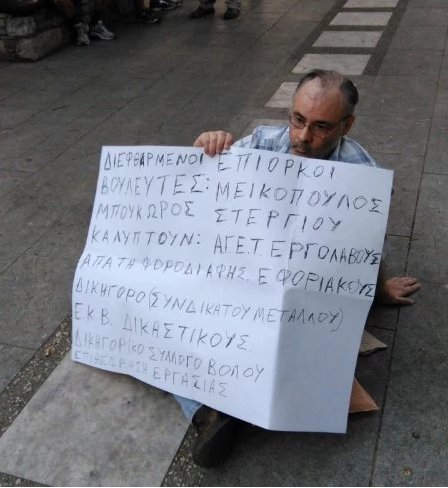 ΔΙΕΦΘΑΡΜΕΝΟΙ ΕΠΙΟΡΚΟΙ
ΒΟΥΛΕΥΤΕΣ: ΜΕΙΚΟΠΟΥΛΟΣ
ΜΠΟΥΚΩΡΟΣ ΣΤΕΡΓΙΟΥ
ΚΑΛΥΠΤΟΥΝ: Α.Γ.Ε.Τ. ΕΡΓΟΛΑΒΟΥΣ
ΑΠΑΤΗ ΦΟΡΟΔΙΑΦΗΣ. ΕΦΟΡΙΑΚΟΥΣ
ΔΙΚΗΓΟΡΟ (ΣΥΝΔΙΚΑΤΟΥ ΜΕΤΑΛΛΟΥ)
ΕΚΒ. ΔΙΚΑΣΤΙΚΟΥΣ.
ΔΙΚΗΓΟΡΙΚΟ ΣΥΛΛΟΓΟ ΒΟΛΟΥ
ΕΠΙΘΕΩΡΗΣΗ ΕΡΓΑΣΙΑΣ